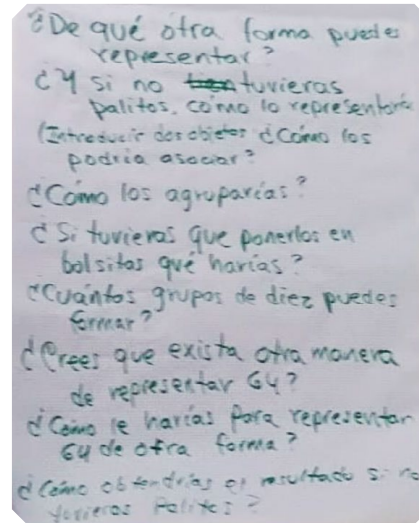 ¿De qué otra forma puedes
representar?
¿Y si no tuvieras
palitos, cómo lo representaría
(Introducir dos objetos ¿Cómo los
podría asociar?
¿Cómo los agruparías?
¿Si tuvieras que ponerlos en
bolsitas qué harías?
¿Cuántos grupos de diez puedes
formar?
¿Crees que exista otra manera
de representar 64?
¿Cómo le harías para representar
64 de otra forma?
¿Cómo obtendrías el resultado si no
tuvieras Palitos?